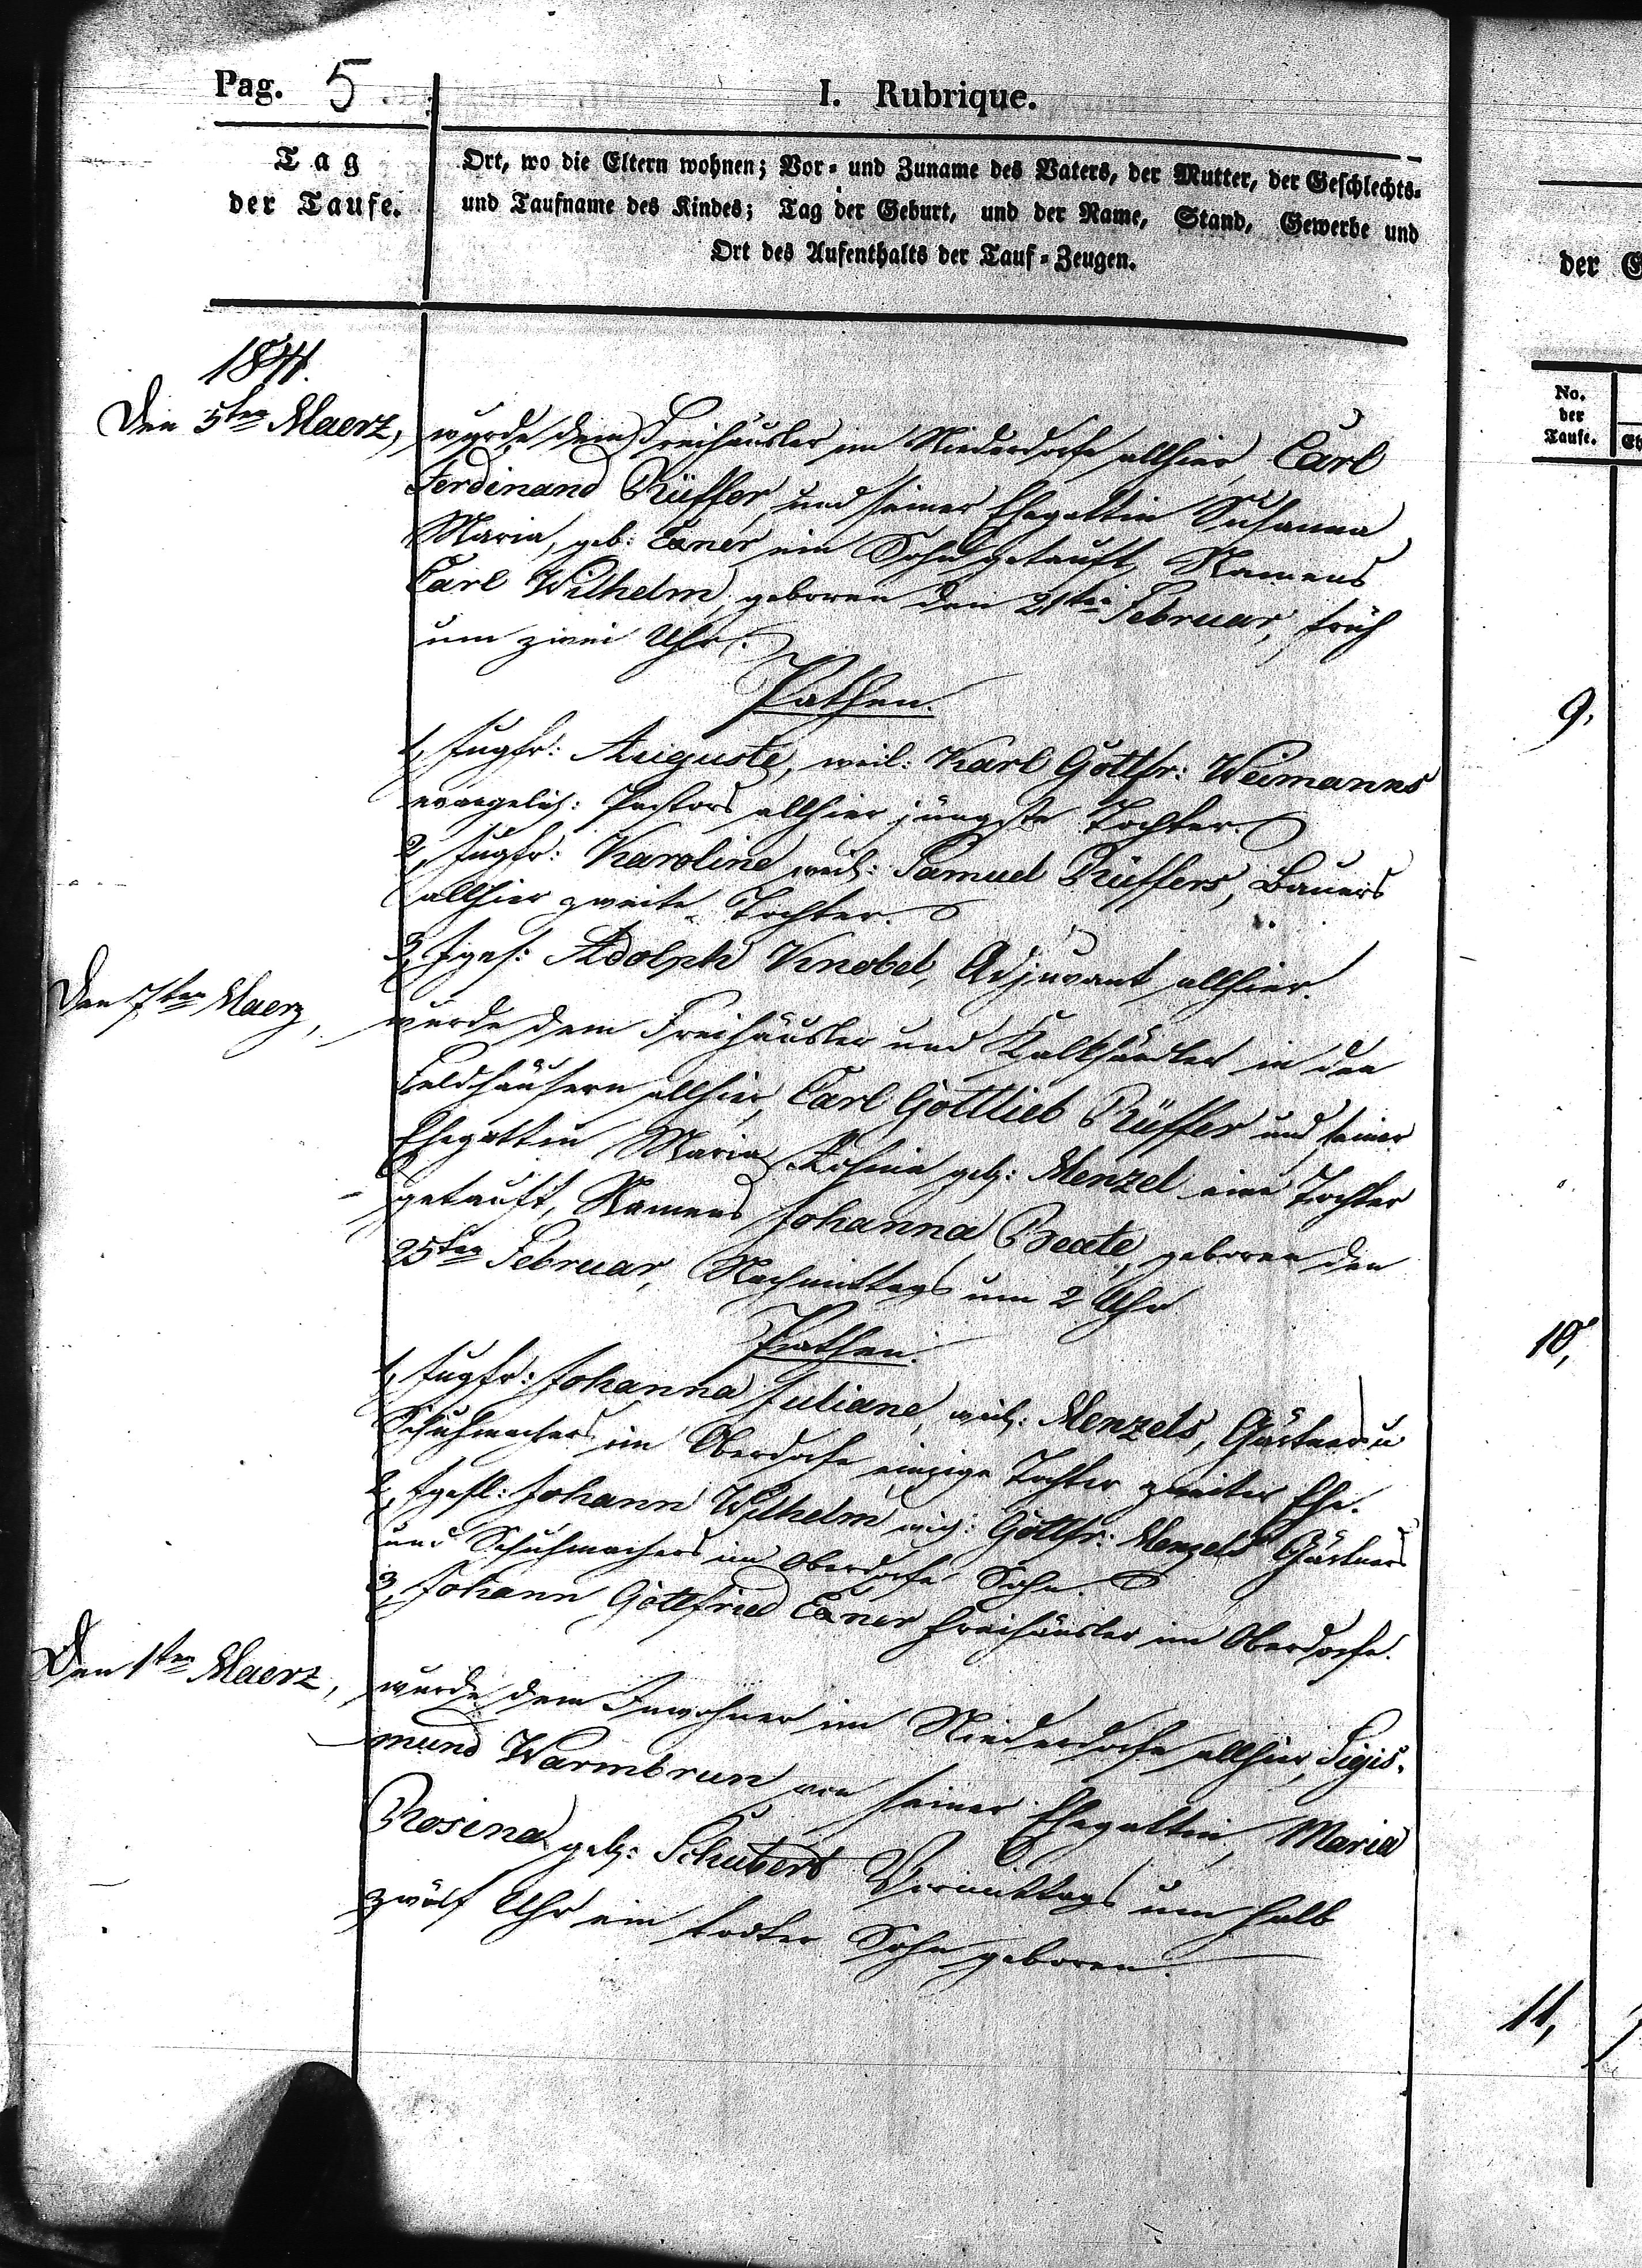 Pag. 5
I. Rubrique.
Tag
der Taufe.
Ort, wo die Eltern wohnen; Vor- und Zuname des Vaters, der Mutter, der Geschlechts-
und Taufname des Kindes; Tag der Geburt, und der Name, Stand, Gewerbe und
Ort des Aufenthalts der Tauf-Zeugen.
1844.
Den 5ten Maerz,
wurde dem Freihäusler im Niederdorfe allhier, Carl
Ferdinand Rüffer, und seiner Ehegattin Susanna
Maria, geb: Exner ein Sohn getauft, Namens
Carl Wilhelm, geboren den 21ten Februar, früh
um zwei Uhr.
Pathen.
1, Jugfr: Auguste, weil: Karl Gottfr: Weimanns
evangelisch: Pastors allhier jüngste Tochter.
2, Jugfr: Karoline, weil: Samuel Rüffers, Bauers
allhier zweite Tochter.
3, Jges: Adolph Knobel, Adjuvant allhier.
Den 7ten Maerz,
wurde dem Freihäusler und Kalkhändler in den
Feldhäusern allhier, Carl Gottlieb Rüffer und seiner
Ehegattin Maria Rosina geb: Menzel eine Tochter
getauft, Namens Johanna Beate, geboren den
25ten Februar, Nachmittags um 2 Uhr
Pathen.
1, Jugfr: Johanna Juliane, weil: Menzels, Gärtner u
Schuhmachers im Oberdorfe einzige Tochter zweiter Ehe.
2, Jgesll: Johann Wilhelm, weil: Gottfr: Menzels Gärtners
und Schuhmachers im Oberdorfe Sohn.
3, Johann Gottfried Exner Freihäusler im Oberdorfe.
Den 1ten Maerz,
wurde dem Inwohner im Niederdorfe allhier, Sigis-
mund Warmbrun von seiner Ehegattin, Maria
Rosina geb: Schubert Vormittags um halb
zwölf Uhr ein todter Sohn geboren.
der
No.
der
Taufe.
9.
10,
11,